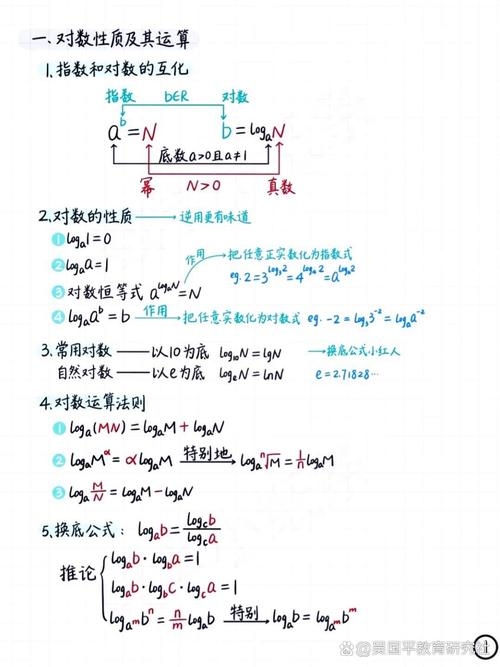 一、对数性质及其运算
1.指数和对数的互化
指数 b∈R 对数
aᵇ=N b=logₐN
底数a>0且a≠1
幂 N>0 真数
2.对数的性质→逆用更有味道
①logₐ1=0
②logₐa=1
③对数恒等式 a^(logₐN)=N 作用→把任意正实数化为指数式
eg. 2=3^(log₃2)=4^(log₄2)=a^(logₐ2)
④logₐaᵇ=b 作用→把任意实数化为对数式 eg. -2=log₃3⁻²=logₐa⁻²
3.常用对数——以10为底 log₁₀N=lgN →换底公式小红人
自然对数——以e为底 logₑN=lnN e=2.71828…
4.对数运算法则
①logₐ(MN)=logₐM+logₐN
②logₐM^α=αlogₐM 特别地→logₐⁿ√M=1/n logₐM
③logₐM/N=logₐM-logₐN
5.换底公式：logₐb=log_c b/log_c a
推论
logₐb·log_b a=1
logₐb·log_b c·log_c a=1
log_(aᵐ)bⁿ=n/m logₐb 特别→logₐb=log_(aᵐ)bᵐ
1
@吴国平教育研究社